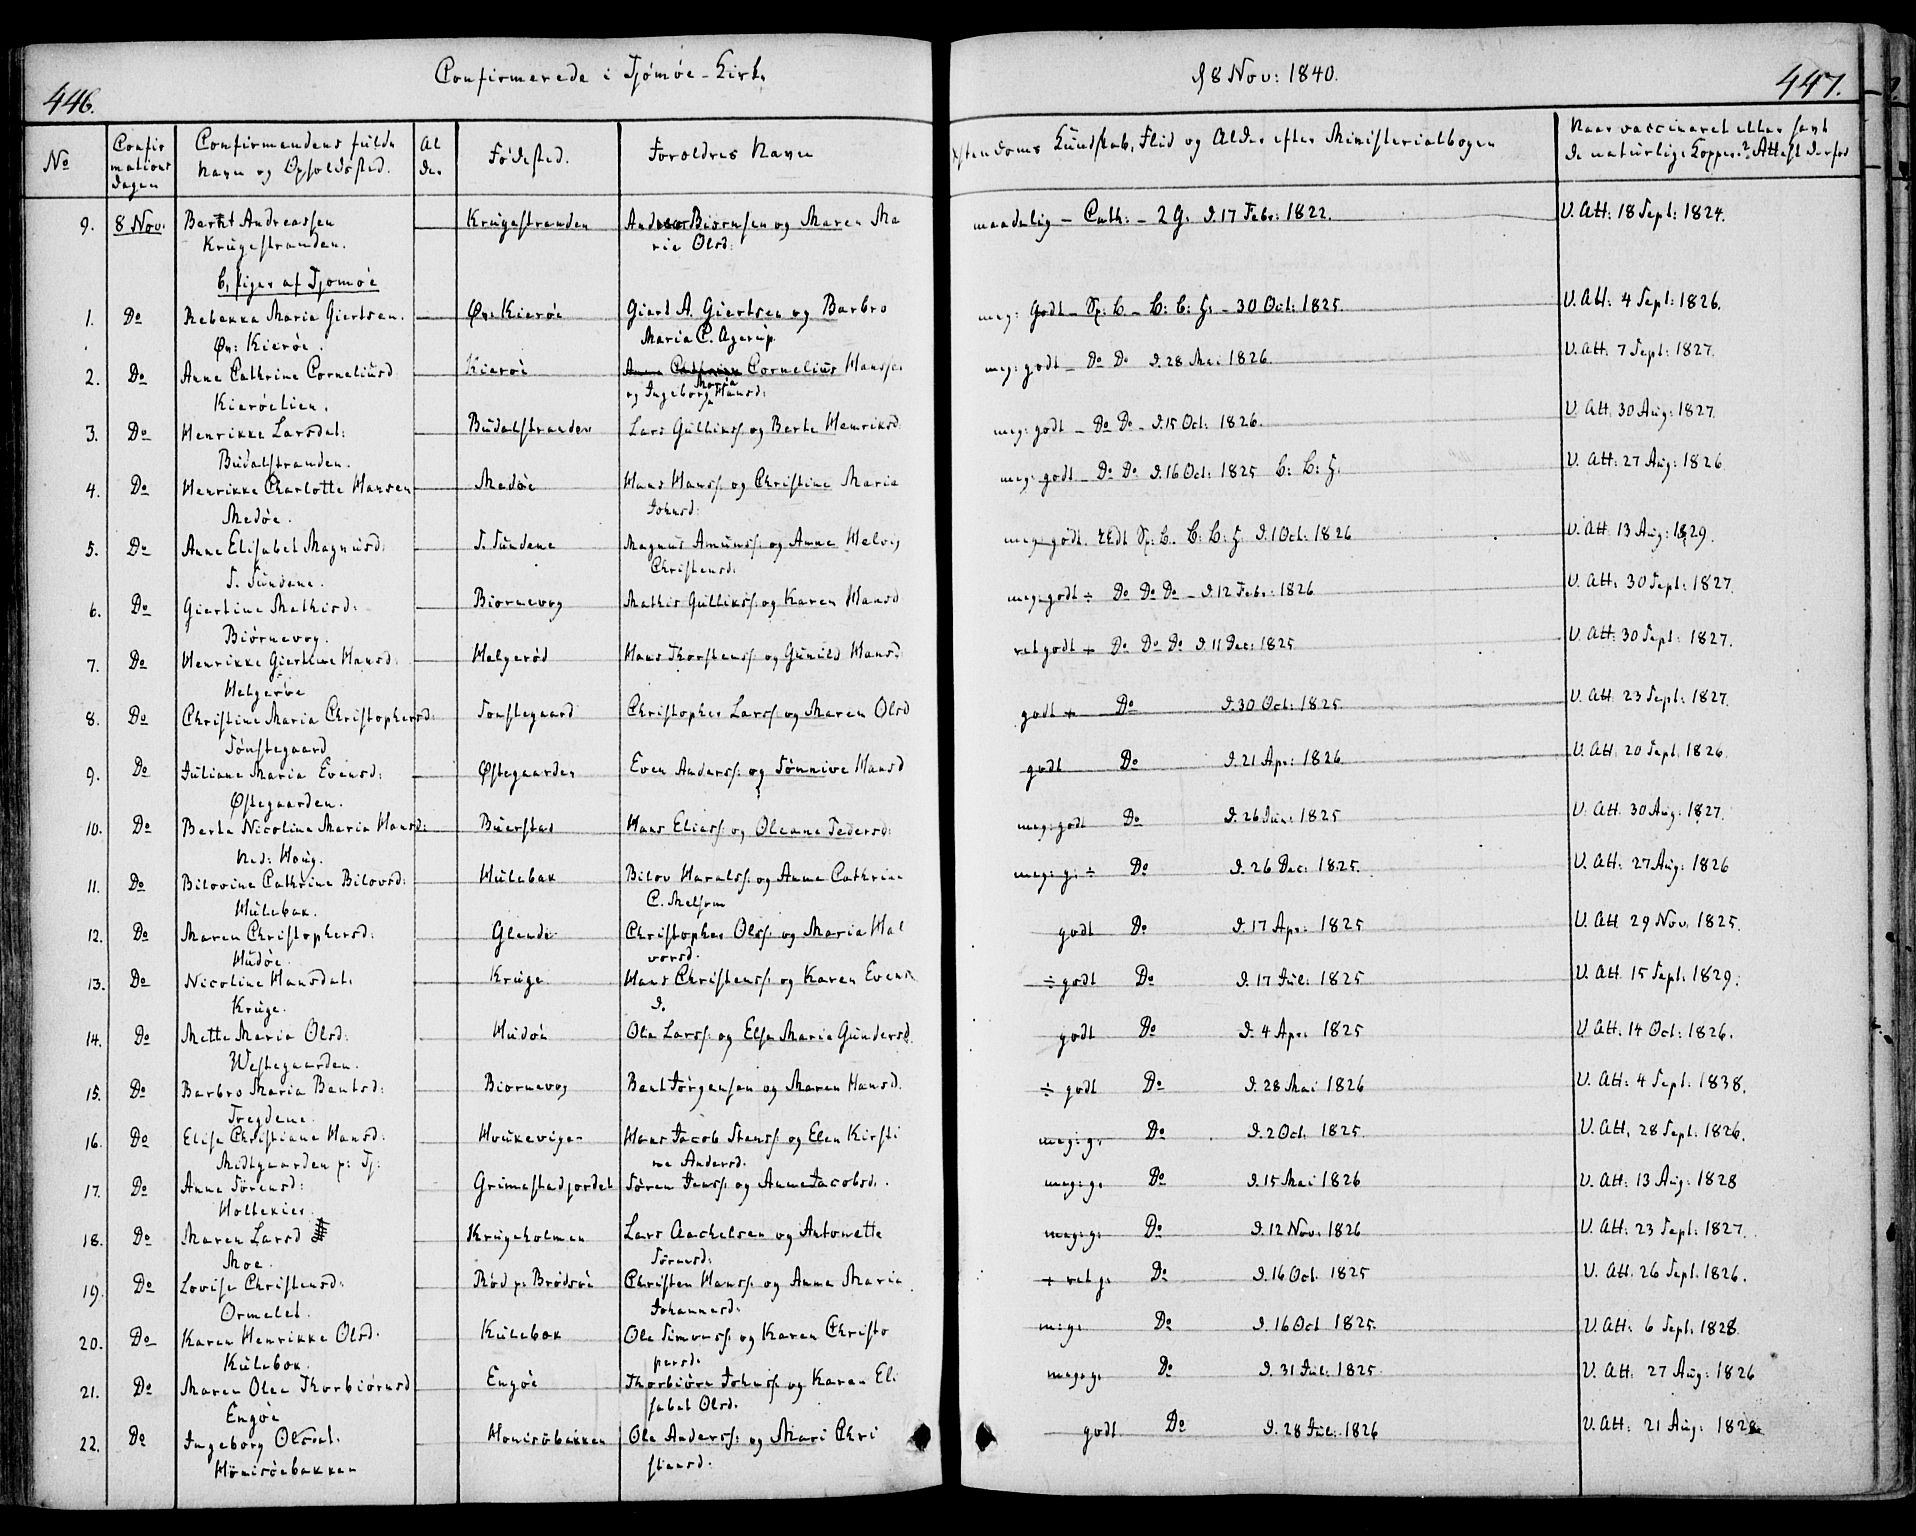 446.
Confirmerede i Tjömöe-Kirke
d 8 Nov: 1840.
447.
No
Confir
mations
dagen
Confirmandens fulde
Navn og Opholdssted.
Al
der
Födested.
Forældres Navn
Christendoms Kundskab, Flid og Alder efter Ministerialbogen
Naar vaccineret eller havt
de naturlige Kopper? Attest derfor
9. 8 Nov. Bernt Andreassen Krugestranden Biörnsen og Maren Ma maadelig - Cath: - 2 G. d. 17 Febr: 1822. V. Att: 18 Sept: 1824.
Krugestranden. rie Olsd:
b, Piger af Tjomöe
1. Do Rebekka Maria Giertsen. Ör: Kieröe Giert A. Giertsen og Barbro meg: godt - Sp: L - L: C: F. - 30 Oct: 1825. V. Att: 4 Sept: 1826.
Ör: Kieröe. Maria C. Agerup.
2. Do Anne Cathrine Corneliusd. Kieröe Cornelius Hanssen meg: godt - Do Do d. 28 Mai 1826. V. Att. 7 Sept: 1827.
Kieröelien. og Ingeborg Maria Hansd:
3. Do Henrikke Larsdat: Budalstranden Lars Gulliks. og Berte Henriksd. meg: godt - Do Do - d. 15 Oct: 1826. V. Att. 30 Aug: 1827.
Budalstranden.
4. Do Henrikke Charlotte Hansen Medöe Hans Hanss. og Christine Marie meg: godt - Do Do d. 16 Oct: 1825 C: L: F. V. Att: 27 Aug: 1826
Medöe. Johnsd:
5. Do Anne Elisabet Magnusd: S. Sundene Magnus Amunds: og Anne Helvig meg. godt. d. 1 Oct: 1826 V. Att. 13 Aug: 1829.
S. Sundene. Christensd:
6. Do Giertine Mathisd: Biornevog Mathis Gulliks. og Karen Hansd meg. godt ÷ Do Do Do - d. 12 Febr: 1826 V. Att: 30 Sept: 1827.
Biörnevog.
7. Do Henrikke Giertine Hansd: Helgeröd Hans Thorstens: og Gunild Hansd. ret godt + Do Do Do d. 11 Dec: 1825 V. Att: 30 Sept: 1827.
Helgeröe
8. Do Christine Maria Christophersd: Sonstegaard Christopher Larss: og Maren Olsd godt + Do d. 30 Oct: 1825 V. Att: 23 Sept: 1827.
Sönstegaard
9. Do Juliane Maria Evensd: Östegaarden Even Anderss: og Sönnive Hansd godt Do d. 21 Apr: 1826. V. Att: 20 Sept. 1826.
Östegaarden.
10. Do Berte Nicoline Maria Hansd: Buerstad Hans Eliass: og Oleane Pedersd: meg: godt Do d. 26 Jun: 1825 V. Att. 30 Aug: 1827.
Ned: Houg.
11. Do Bilovine Cathrine Bilovsd: Hulebak Bilov Haralds: og Anne Cathrine meg: g: ÷ Do d. 26 Dec: 1825. V. Att: 27 Aug: 1826
Hulebak. C. Melsom
12. Do Maren Christophersd: Glende Christopher Olss: og Maria Hal godt Do d. 17 Apr: 1825 V. Att 29 Nov. 1825.
Hudöe. vorsd.
13. Do Nicoline Hansdat: Kruge Hans Christenss: og Karen Evens ÷ godt Do d. 17 Jul: 1825 V. Att. 15 Sept: 1829.
Kruge. d.
14. Do Mette Maria Olsd: Hudöe Ole Larss: og Else Marie Gundersd. godt Do d. 4 Apr: 1825 V. Att: 14 Oct: 1826.
Westegaarden.
15. Do Barbro Maria Bentsd: Biornevog Bent Jörgensen og Maren Hansd. ÷ godt Do d. 28 Mai 1826 V. Att: 4 Sept. 1838.
Tregdene.
16. Do Elise Christiane Hansd: Houkevigen Hans Jacob Stenss: og Elen Kirsti meg: g: Do d. 2 Oct. 1825. V. Att. 28 Sept: 1826.
Midtgaarden p: Tj: ne Andersd.
17. Do Anne Sörensd: Grimestadjordet Sören Jenss: og Anne Jacobsd. meg: g. Do d. 15 Mai 1826 V. Att: 13 Aug: 1828
Holtekier.
18. Do Maren Larsd Krugeholmen Lars Aschelsen og Antonette meg: g: Do d. 12 Nov: 1826 V. Att: 23 Sept: 1827.
Moe. Sörensd:
19. Do Lovise Christensd: Röd p: Brödsöe Christen Hanss: og Anne Marie ÷ ret g. Do d. 16 Oct. 1825 V. Att. 26 Sept. 1826.
Ormelet. Johannesd:
20. Do Karen Henrikke Olsd. Kulebok Ole Simonss: og Karen Christo m: g: Do d. 16 Oct 1825. V. Att: 6 Sept. 1828.
Kulebok. persd.
21. Do Maren Olea Thorbiörnsd Engöe Thorbiörn Johnss: og Karen Eli meg. g. Do d. 31 Jul: 1825. V. Att: 27 Aug: 1826
Engöe sabet Olsd.
22. Do Ingeborg Olsdat. Honisöebakken Ole Anderss: og Mari Chri godt Do d. 28 Jul: 1826 V. Att: 21 Aug: 1828
Hönisöebakken stensd.